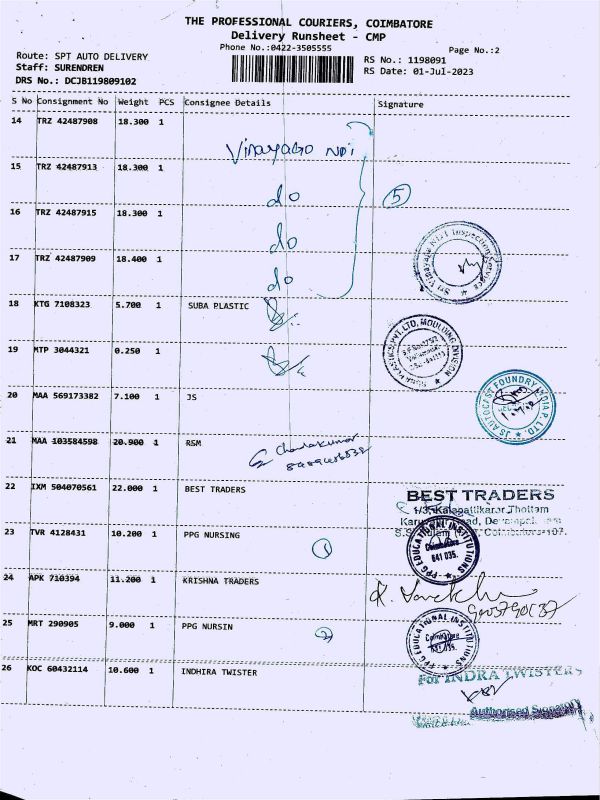 THE PROFESSIONAL COURIERS, COIMBATORE
Delivery Runsheet - CMP
Phone No.:0422-3505555
Page No.:2
Route: SPT AUTO DELIVERY
Staff: SURENDREN
DRS No.: DCJB119809102
RS No.: 1198091
RS Date: 01-Jul-2023
S No Consignment No Weight PCS Consignee Details Signature
14 TRZ 42487908 18.300 1
Vinayaga NDI
15 TRZ 42487913 18.300 1
do
5
16 TRZ 42487915 18.300 1
do
17 TRZ 42487909 18.400 1
do
Sri Vinayaga N.D.T Inspection Service
18 KTG 7108323 5.700 1 SUBA PLASTIC
SUBA PLASTICS PVT.LTD, MOULDING DIVISION
19 MTP 3044321 0.250 1
20 MAA 569173382 7.100 1 JS
JS AUTOCAST FOUNDRY INDIA P. LTD.
21 MAA 103584598 20.900 1 RSM
Chandrakumar
22 IXM 504070561 22.000 1 BEST TRADERS
BEST TRADERS
1/3, Kalapattikarar Thottam
23 TVR 4128431 10.200 1 PPG NURSING
1
PPG EDUCATIONAL INSTITUTIONS
Coimbatore
641 035.
24 APK 710394 11.200 1 KRISHNA TRADERS
25 MRT 290905 9.000 1 PPG NURSIN
2
PPG EDUCATIONAL INSTITUTIONS
Coimbatore
641 035.
26 KOC 60432114 10.600 1 INDHIRA TWISTER
For INDRA TWISTERS
Authorised Signatory